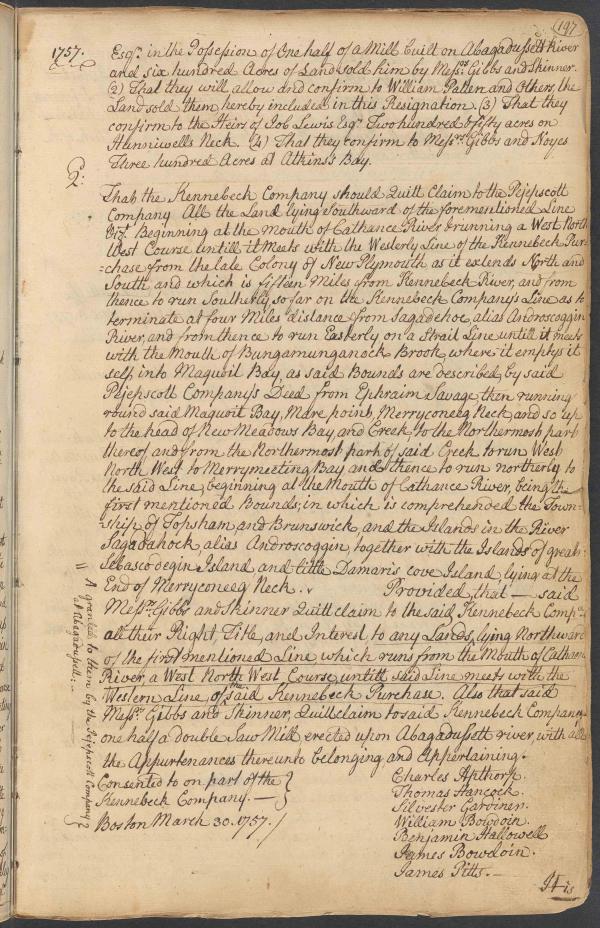 197
1757. Esqr. in the Possession of One half of a Mill built on Abagadussett River
and six hundred Acres of Land sold him by Messrs. Gibbs and Skinner.
(2) That they will allow and confirm to William Patten and Others, the
Land sold them hereby included in this Resignation. (3) That they
confirm to the Heirs of Job Lewis Esqr. Two hundred & fifty acres on
Hunniwells Neck. (4) That they confirm to Messrs. Gibbs and Noyes
Three hundred Acres at Atkins's Bay.
2. That the Kennebeck Company should Quitt Claim to the Pejepscott
Company All the Land lying Southward of the forementioned Line
Vizt. Beginning at the Mouth of Cathance River & running a West North
West Course untill it Meets with the Westerly Line of the Kennebeck Pur=
=chase from the late Colony of New Plymouth as it extends North and
South and which is fifteen Miles from Kennebeck River, and from
thence to run Southerly so far on the Kennebeck Company's Line as to
terminate at four Miles distance from Sagadehoc alias Androscoggin
River, and from thence to run Easterly on a Strait Line untill it meets
with the Mouth of Bungamunganock Brook, where it emptys it
self into Maquoit Bay, as said Bounds are described by said
Pejepscott Company's Deed from Ephraim Savage, then running
round said Maquoit Bay, Mare point, Merryconeeg Neck, and so up
to the head of New Meadows Bay, and Creek, to the Northermost part
thereof and from the Northermost part of said Creek to run West
North West to Merrymeeting Bay and thence to run northerly to
the said Line, beginning at the Mouth of Cathance River, being the
first mentioned Bounds; in which is comprehended the Town=
=ship of Topsham, and Brunswick, and the Islands in the River
Sagadahock, alias Androscoggin, together with the Islands of great
Sebascodegin Island and little Damaris cove Island, lying at the
End of Merryconeeg Neck. Provided, that — said
Messrs. Gibbs and Skinner Quitt claim to the said Kennebeck Compa.
all their Right, Title, and Interest to any Lands, lying Northward
of the first mentioned Line which runs from the Mouth of Cathance
River, a West North West Course untill said Line meets with the
Western Line, of the said Kennebeck Purchase. Also that said
Messrs. Gibbs and Skinner, Quitt claim to said Kennebeck Company
one half a double Saw Mill erected upon Abagadussett river, with all
the Appurtenances thereunto belonging, and Appertaining.
Consented to on part of the
Kennebeck Company. —
Boston March 30. 1757.
Charles Apthorp.
Thomas Hancock.
Silvester Gardiner.
William Bowdoin.
Benjamin Hallowell
James Bowdoin.
James Pitts. —
It is
A granted to them by the Pejepscott Company
at Abagadussett: —